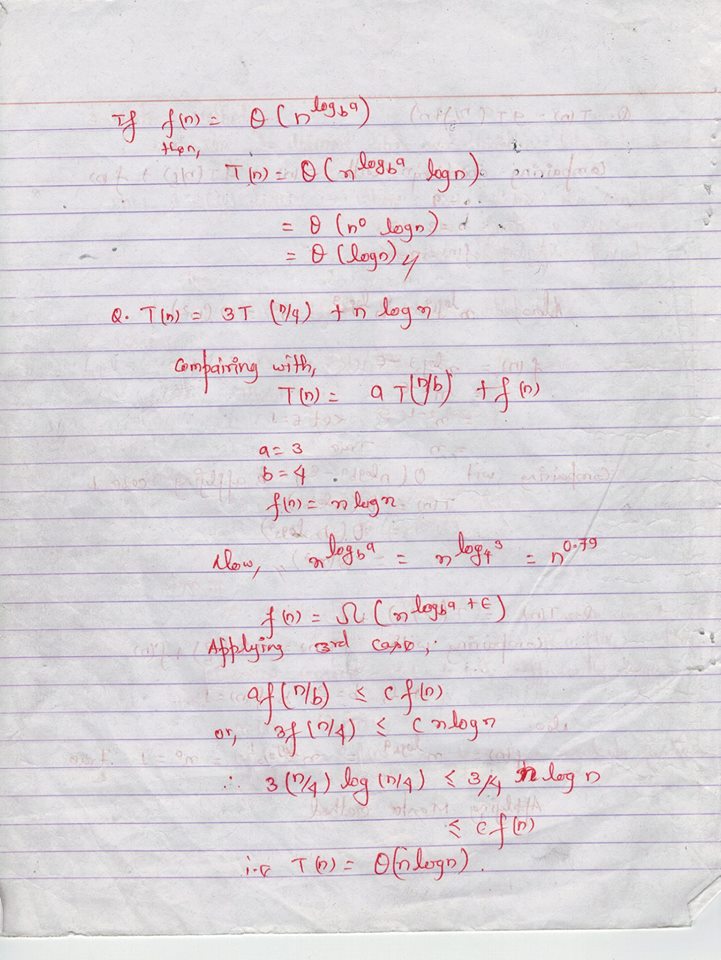 If f(n) = θ(n^log_b a)
then,
T(n) = θ(n^log_b a logn)
= θ(n^0 logn)
= θ(logn)
Q. T(n) = 3T (n/4) + n logn
Comparing with,
T(n) = a T(n/b) + f(n)
a = 3
b = 4
f(n) = n logn
Now, n^log_b a = n^log_4 3 = n^0.79
f(n) = Ω(n^log_b a + ε)
Applying 3rd case,
af(n/b) ≤ c f(n)
or, 3f(n/4) ≤ c nlogn
∴ 3(n/4) log(n/4) ≤ 3/4 n log n
≤ c f(n)
i.e T(n) = θ(nlogn).